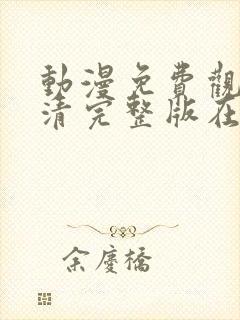 動漫免費觀
清完整版在
余慶橋